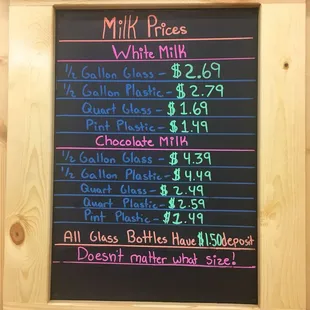 Milk Prices
White Milk
1/2 Gallon Glass - $2.69
1/2 Gallon Plastic - $2.79
Quart Glass - $1.69
Pint Plastic - $1.49
Chocolate Milk
1/2 Gallon Glass - $4.39
1/2 Gallon Plastic - $4.49
Quart Glass - $2.49
Quart Plastic - $2.59
Pint Plastic - $1.49
All Glass Bottles Have $1.50 deposit
Doesn't matter what size!